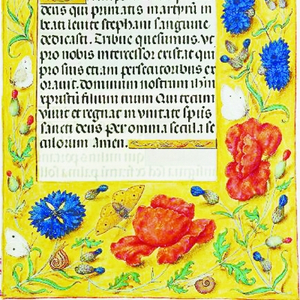 deus qui primitias martirum in
beati leuite stephani sanguine
dedicasti. Tribue quesumus. vt
pro nobis intercessor existat qui
pro suis etiam persecutoribus ex
orauit. dominum nostrum ihm
xpristum filium tuum Qui tecum
viuit et regnat in vnitate spūs
sancti deus Per omnia secula se
culorum amen.